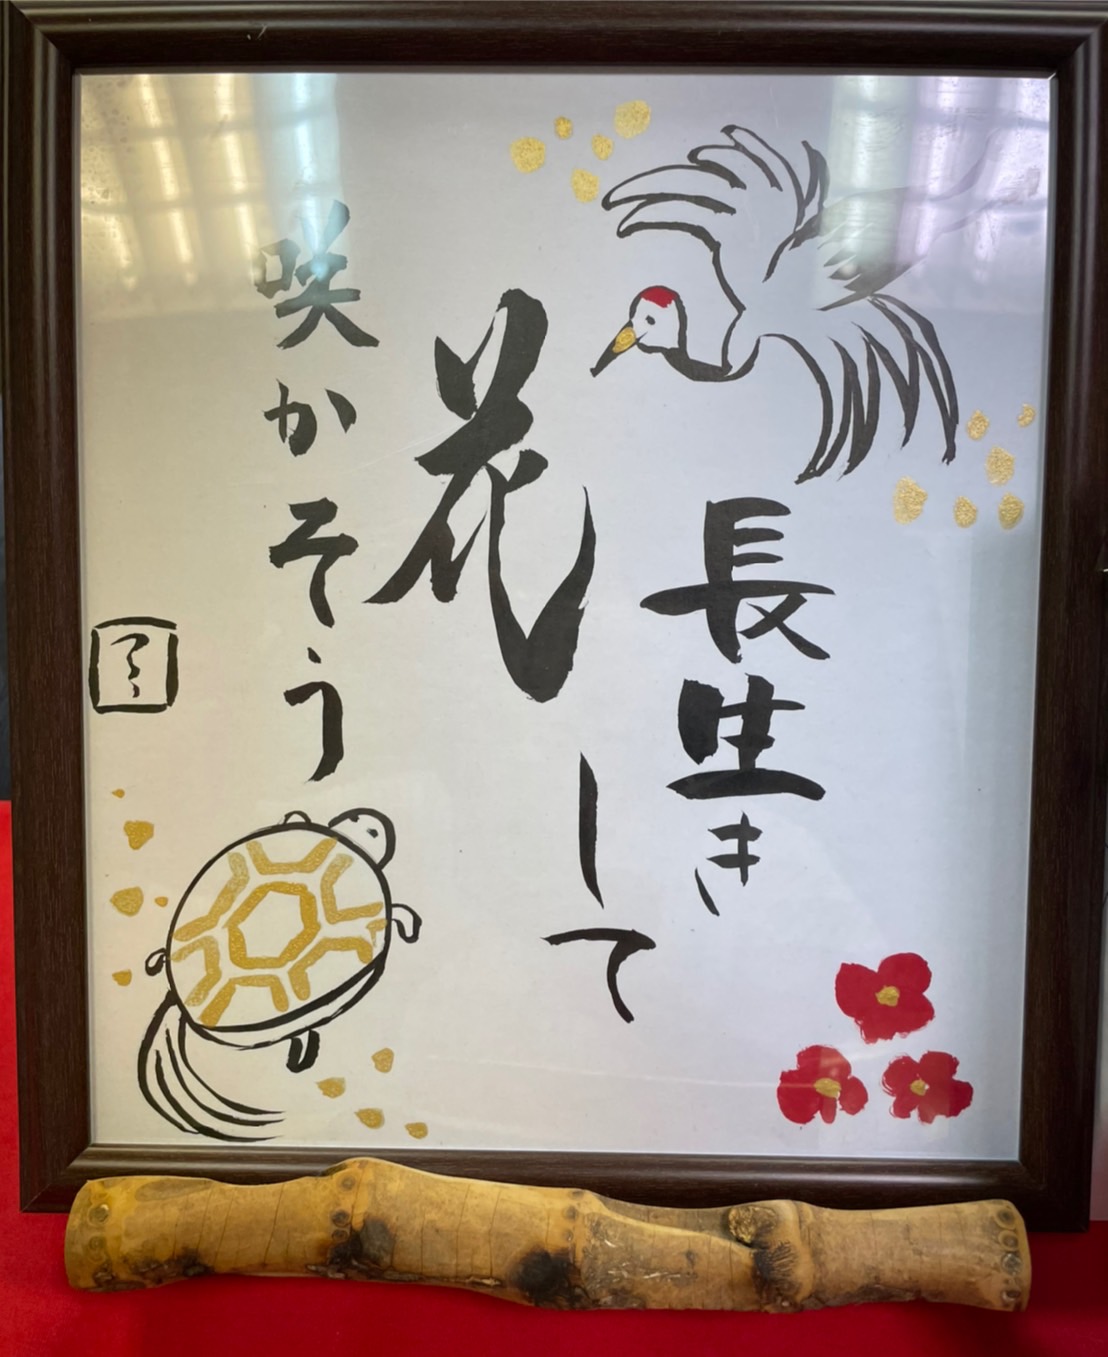 長生き
して
花
咲かそう